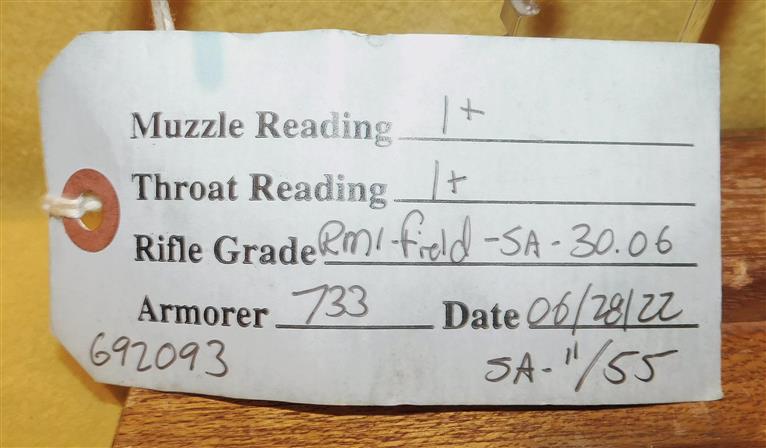 Muzzle Reading 1+
Throat Reading 1+
Rifle Grade RM1-field-SA-30.06
Armorer 733 Date 06/28/22
692093 SA-11/55